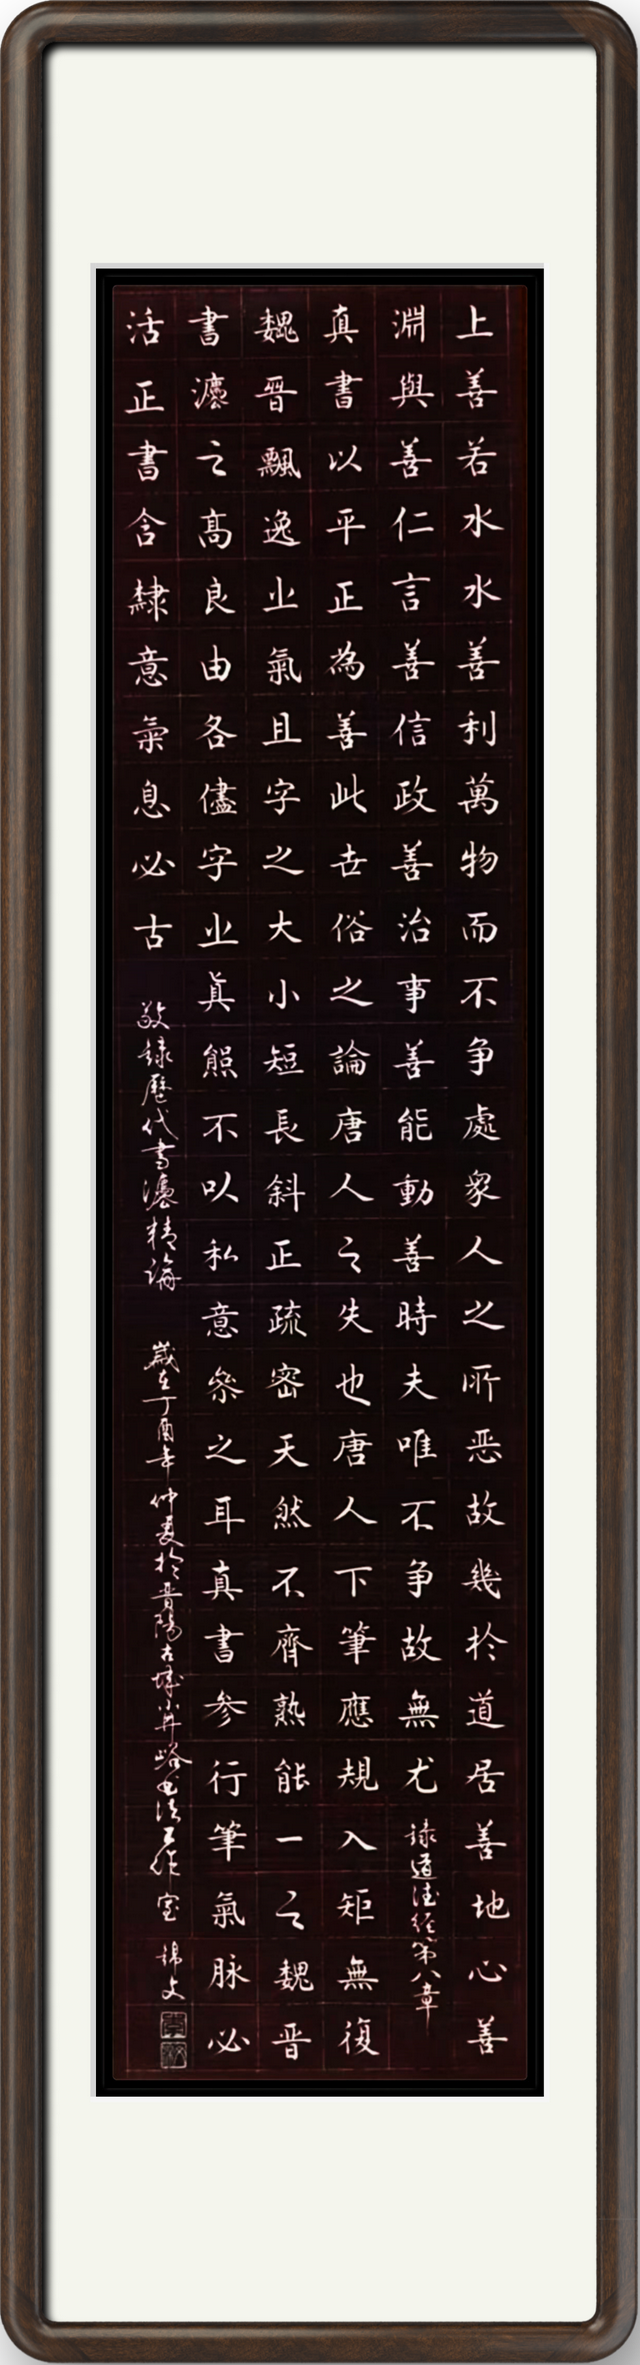 上善若水水善利萬物而不争處衆人之所恶故幾扵道居善地心善
淵與善仁言善信政善治事善能動善時夫唯不争故無尤
録道德經第八章
真書以平正為善此世俗之論唐人之失也唐人下筆應規入矩無復
魏晋飄逸㞢氣且字之大小短長斜正疏密天然不齊熟能一之魏晋
書灋之髙良由各儘字㞢真態不以私意叅之耳真書参行筆氣脉必
活正書含隸意氣息必古
敬録歷代書灋精論
歲在丁酉年仲夏扵晋陽古城小井峪書法工作室 錦文